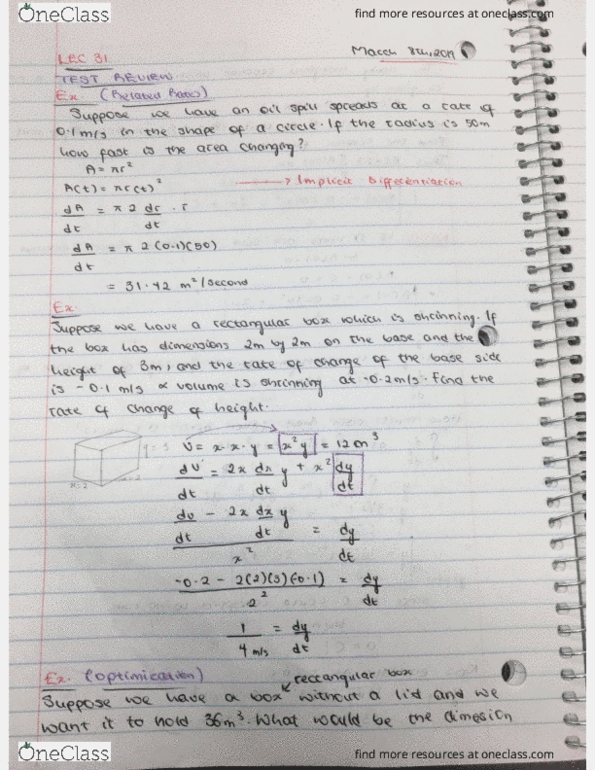 OneClass
find more resources at oneclass.com
LEC 31
March 8th, 2019
TEST REVIEW
Ex. (Related Rates)
Suppose we have an oil spill spreads at a rate of
0.1 m/s in the shape of a circle. If the radius is 50m
how fast is the area changing?
A = πr²
A(t) = πr(t)² → Implicit Differentiation
dA/dt = π 2 dr/dt · r
dA/dt = π 2 (0.1)(50)
= 31.42 m²/second
Ex.
Suppose we have a rectangular box which is shrinning. If
the box has dimensions 2m by 2m on the base and the
height of 3m, and the rate of change of the base side
is -0.1 m/s & volume is shrinning at -0.2m/s. find the
rate of change of height.
y = 3
x=2
x=2
V = x·x·y = x²y = 12m³
dV/dt = 2x dx/dt y + x² dy/dt
(dv/dt - 2x dx/dt y) / x² = dy/dt
(-0.2 - 2(2)(3)(-0.1)) / 2² = dy/dt
1/4 m/s = dy/dt
Ex. (optimization)
rectangular box
Suppose we have a box without a lid and we
want it to hold 36m³. What would be the dimesion
OneClass
find more resources at oneclass.com